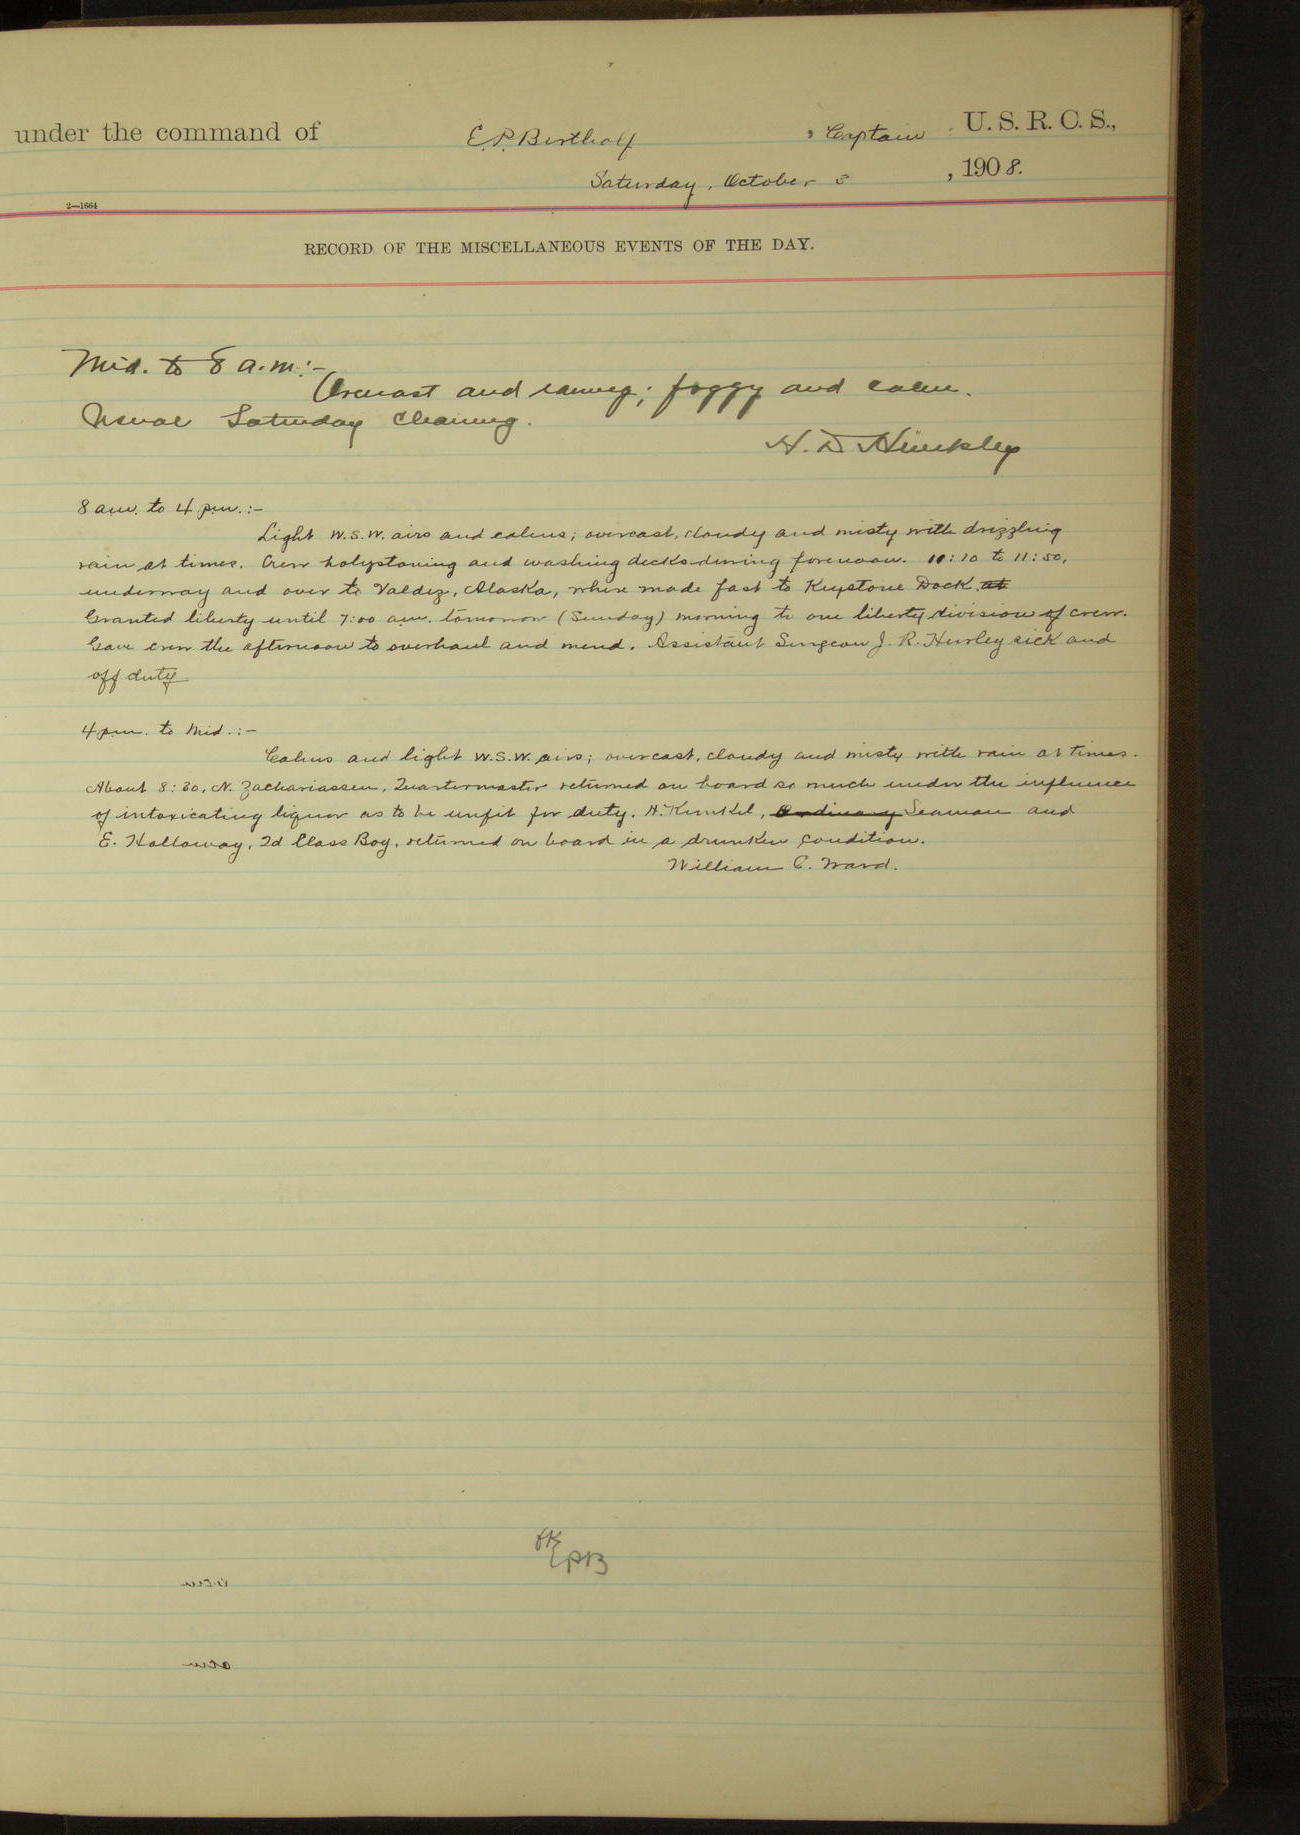 under the command of E. P. Bertholf , Captain U. S. R. C. S.,
Saturday, October 3 , 1908.
2—1664
RECORD OF THE MISCELLANEOUS EVENTS OF THE DAY.
Mid. to 8 a.m.:-
Overcast and raining; foggy and calm.
Usual Saturday cleaning.
H. D Hinckley
8 am. to 4 pm.:-
Light W.S.W. airs and calms; overcast, cloudy and misty with drizzling
rain at times. Crew holystoning and washing decks during forenoon. 11:10 to 11:50,
underway and over to Valdez, Alaska, where made fast to Keystone Dock at
Granted liberty until 7:00 am. tomorrow (Sunday) morning to one liberty division of crew.
Gave crew the afternoon to overhaul and mend. Assistant Surgeon J. R. Hurley sick and
off duty
4 pm. to Mid.:-
Calms and light W.S.W. airs; overcast, cloudy and misty with rain at times.
About 8:30, N. Zachariassen, Quartermaster returned on board so much under the influence
of intoxicating liquor as to be unfit for duty. H. Kunkel, Ordinary Seaman and
E. Holloway, 2d Class Boy, returned on board in a drunken condition.
William C. Ward.
OK
EPB